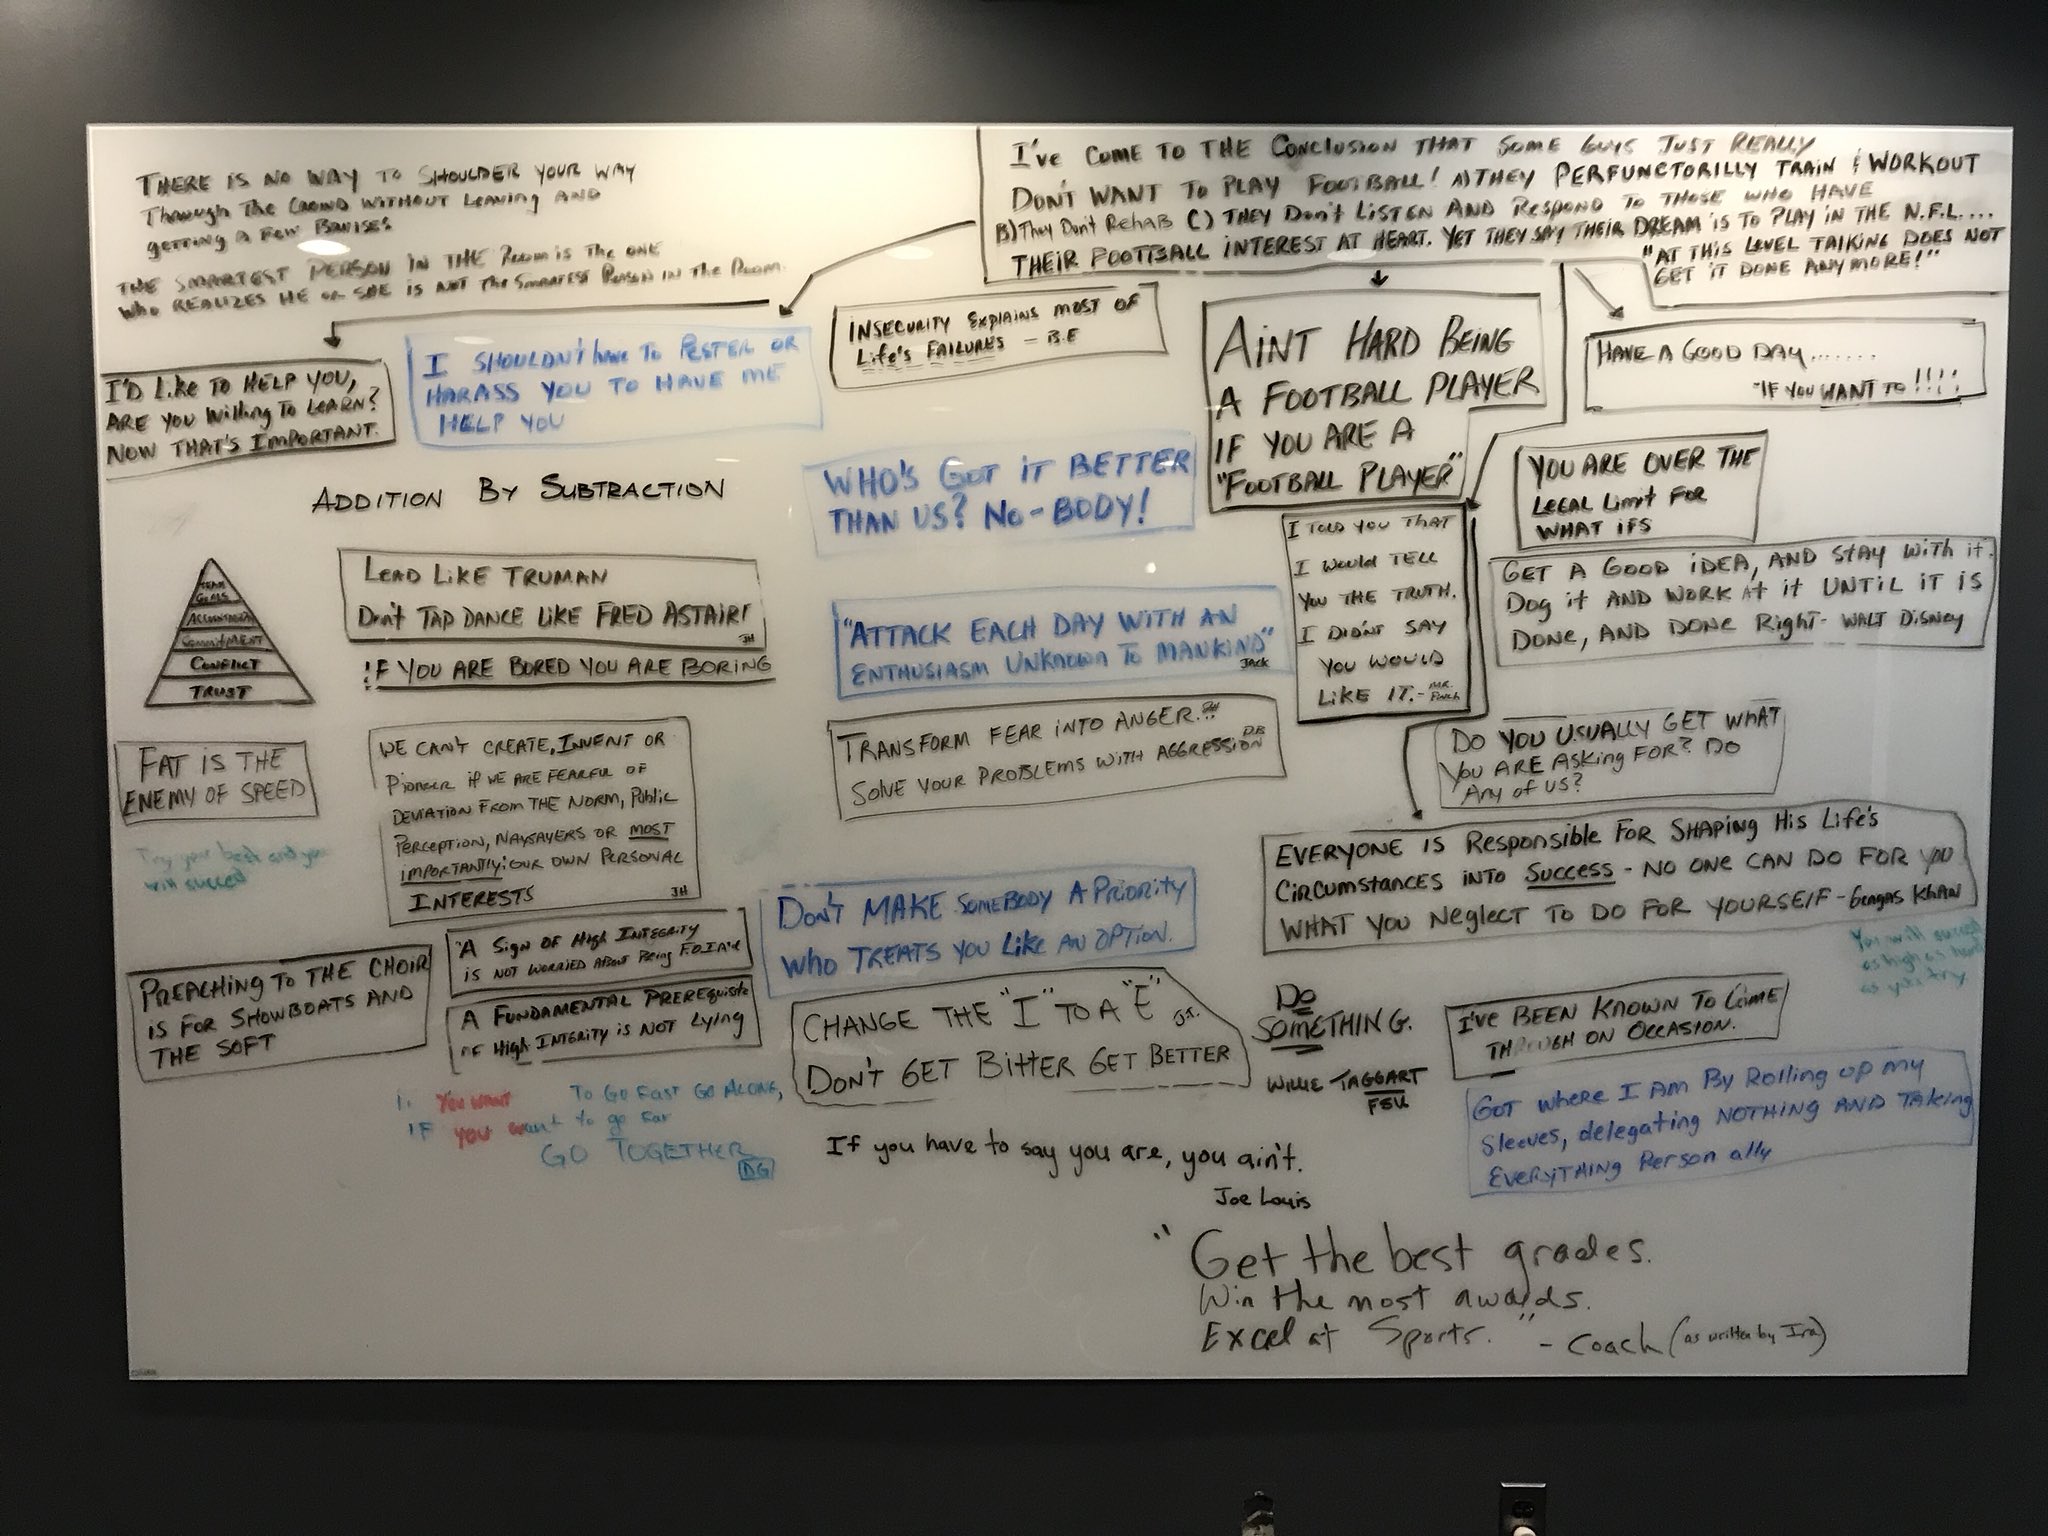 THERE IS NO WAY TO SHOULDER YOUR WAY
Through The CROWD WITHOUT Leaving AND
getting A Few BRUISES
THE SMARTEST PERSON IN THE Room is The ONE
Who REALIZES HE or SHE IS NOT The Smartest Person IN The Room.
I've COME TO THE CONCLUSION THAT SOME GUYS JUST REALLY
DON'T WANT TO PLAY FOOTBALL! A) THEY PERFUNCTORILLY TRAIN & WORKOUT
B) They Don't Rehab C) THEY DON'T LISTEN AND RESPOND TO THOSE WHO HAVE
THEIR FOOTBALL INTEREST AT HEART. YET THEY SAY THEIR DREAM IS TO PLAY IN THE N.F.L....
"AT THIS LEVEL TALKING DOES NOT
GET IT DONE ANYMORE!"
I'D Like TO HELP YOU,
ARE YOU Willing TO LEARN?
NOW THAT'S IMPORTANT.
I SHOULDN'T have TO PESTER OR
HARASS YOU TO HAVE ME
HELP YOU
INSECURITY EXPLAINS MOST OF
Life's FAILURES - B.E
AINT HARD BEING
A FOOTBALL PLAYER
IF YOU ARE A
"FOOTBALL PLAYER"
HAVE A GOOD DAY.......
"IF YOU WANT TO !!!!
ADDITION BY SUBTRACTION
WHO'S GOT IT BETTER
THAN US? NO-BODY!
YOU ARE OVER THE
LEGAL LIMIT FOR
WHAT IFS
I TOLD YOU THAT
I WOULD TELL
YOU THE TRUTH.
I DIDN'T SAY
YOU WOULD
LIKE IT. - MR.
Finch
TEAM
GOALS
COMMITMENT
CONFLICT
TRUST
LEAD LIKE TRUMAN
Don't TAP DANCE LIKE FRED ASTAIR!
JH
IF YOU ARE BORED YOU ARE BORING
"ATTACK EACH DAY WITH AN
ENTHUSIASM UNKNOWN TO MANKIND"
JACK
GET A GOOD IDEA, AND STAY With it.
Dog it AND WORK At it UNTIL IT IS
DONE, AND DONE Right - WALT DISNEY
FAT IS THE
ENEMY OF SPEED
WE CAN'T CREATE, INVENT OR
Pioneer if WE ARE FEARFUL OF
DEVIATION FROM THE NORM, Public
PERCEPTION, NAYSAYERS OR MOST
IMPORTANTLY: OUR OWN PERSONAL
INTERESTS JH
TRANSFORM FEAR INTO ANGER.
SOLVE YOUR PROBLEMS WITH AGGRESSION
DO YOU USUALLY GET WHAT
YOU ARE ASKING FOR? DO
Any of US?
Try your best and you
will succeed
EVERYONE IS Responsible FOR SHAPING His Life's
CIRCUMSTANCES INTO SUCCESS - NO ONE CAN DO FOR YOU
WHAT YOU Neglect TO DO FOR YOURSELF - Gengas KHAN
DON'T MAKE SOMEBODY A PRIORITY
WHO TREATS YOU LIKE AN OPTION.
"A SIGN OF High INTEGRITY
IS NOT WORRIED ABOUT Being
A FUNDAMENTAL PREREQUISITE
OF High INTEGRITY IS NOT LYING
PREACHING TO THE CHOIR
IS FOR SHOWBOATS AND
THE SOFT
CHANGE THE "I" TO A "E"
DON'T GET BITTER GET BETTER
DO
SOMETHING.
WILLIE TAGGART
FSU
You will succeed
as high as
as you try.
I'VE BEEN KNOWN TO COME
THROUGH ON OCCASION.
GOT WHERE I AM By Rolling up my
Sleeves, delegating NOTHING AND TAKING
EVERYTHING Personally
YOU WANT TO GO FAST GO ALONE,
IF YOU want to go far
GO TOGETHER
DG
If you have to say you are, you ain't.
Joe Louis
"Get the best grades.
Win the most awards.
Excel at Sports." - Coach (as written by Ira)